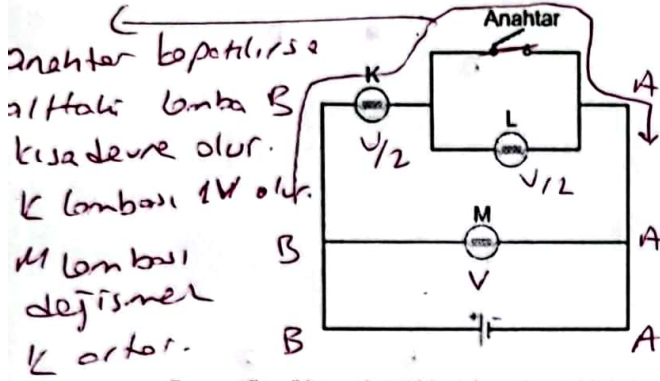 Anahtar
anahtar kapatılırsa
alttaki lamba
kısadevre olur.
K lambası 1V olur.
M lambası
değişmez
K artar.
K
V/2
L
V/2
M
V
B
A
B
A
B
A
+
-